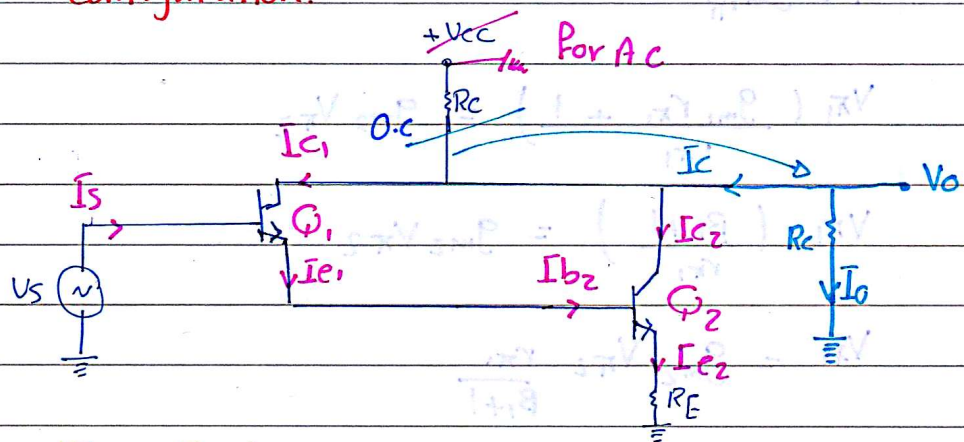 configuration.
+Vcc
For AC
Rc
O.C
Ic1
Ic
Vo
Is
Q1
Ic2
Rc
Ie1
Ib2
Io
Vs
Q2
Ie2
RE